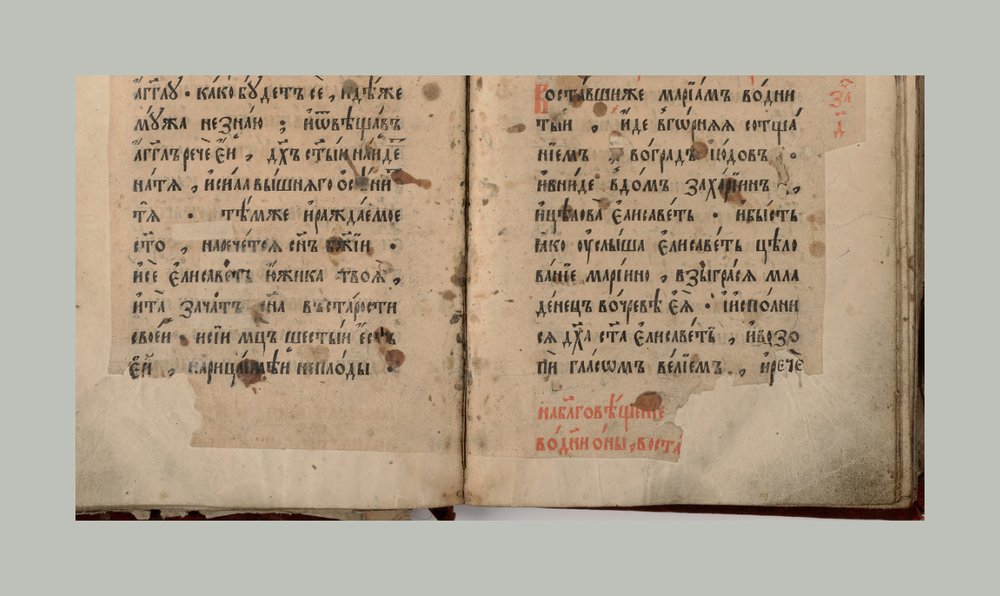 а҆́гг҃лꙋ . како бꙋ́детъ сѐ , и҆дѣ́же
мꙋ́жа незна́ю ; и҆ѿвѣща́въ
а҆́гг҃лъ речѐ е҆́й , дх҃ъ ст҃ы́й на́йде
натѧ̀ , и҆си́ла вы́шнѧго ѡ҆сѣни́
тѧ̀ . тѣ́мже и҆ражда́емое
ст҃о , нарече́тсѧ сн҃ъ бж҃їи .
и҆сѐ є҆лисаве́тъ ю҆́жика твоѧ̀ ,
и҆та̀ зача́тъ сн҃а въста́рости
свое́й . исїи мц҃ъ шесты́й є҆́сть
е҆́й , нарица́емѣй непло́ды .
Воста́вшиже марїа́мъ во́дни
ты́й , и҆́де вго́рнѧѧ сотща́
нїемъ , во́градъ і҆ю́довъ .
и҆вни́де вдо́мъ заха́рїинъ ,
и҆цѣлова̀ є҆лисаве́ть . ибы́сть
ꙗ҆́ко ᲂу҆слы́ша є҆лисаве́ть цѣло
ва́нїе марі́ино , взыгра́сѧ мла
де́нецъ во́чревѣ є҆ѧ̀ . і҆испо́лни
сѧ дх҃а ст҃а є҆лисаве́ть , и҆возо
пѝ гла́сѡмъ ве́лїемъ , и҆речѐ
за
д҃
набл҃говѣ́щенїе
во́дни о́ны , воста́